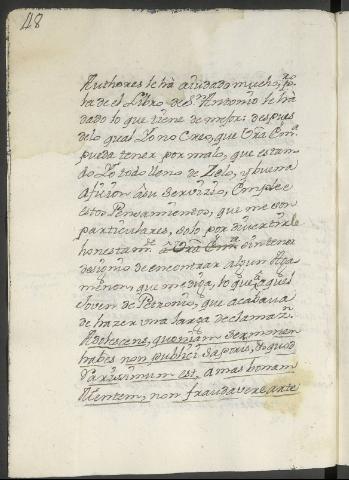 48
Authores le ha aiudado mucho,
ha de el Libro de S. Antonio le ha
dado lo que tiene de mejor: despues
delo qual Yo no Creo, que Vra Em.ª
pueda tener por malo, que estan
do Yo todo lleno de Zelo, y buena
aficion âsu servizio, Emplee
estos Pensamientos, que me son
particulares, solo por divertirle
honestam.te â Vra Em.ª
designio de encontrar algun
menon, que me diga, lo que aquel
Joven de Petronio, que acabava
de hazer una larga declamaz.n
Adolescens, quoniam sermonem
habes non publici saporis, & quod
rarissimum est, amas bonam
Mentem, non fraudavere arte